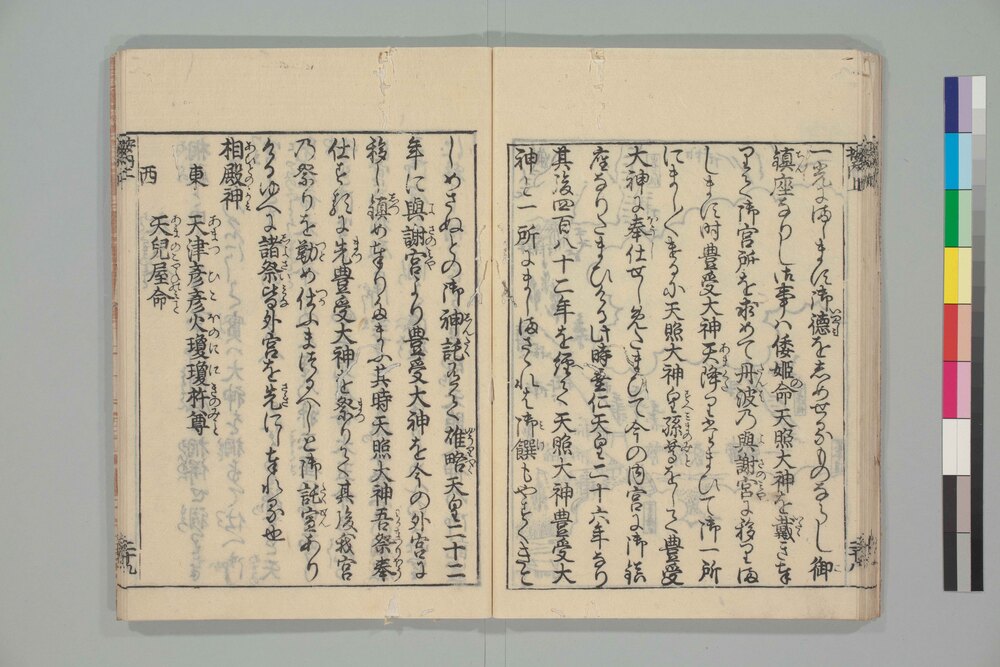 一光にましまして御徳をしめせるものならし御
鎮座なりし御事ハ倭姫命天照大神を戴き奉
りて御宮所を求めて丹波乃與謝宮に移りま
しまし時豊受大神天降りたまひて御一所
にましくけるに天照大神皇孫をして豊受
大神に奉仕せしめたまひて今の内宮に御鎮
座なりたまひける此時垂仁天皇二十六年なり
其後四百八十二年を經て天照大神豊受大
神と一所にましまさされは御饌もやすくきこ
しめさぬとの御神託ありて雄略天皇二十二
年に與謝宮より豊受大神を今の外宮に
移し鎮め奉りたまふ其時天照大神吾祭奉
仕せん時に先豊受大神を祭りて其後我宮
乃祭りを勤め仕ふまつるへしと御託宣あり
けるゆへに諸祭皆外宮を先にし奉れる也
相殿神
東 天津彦彦火瓊瓊杵尊
西 天兒屋命
二十八
二十九